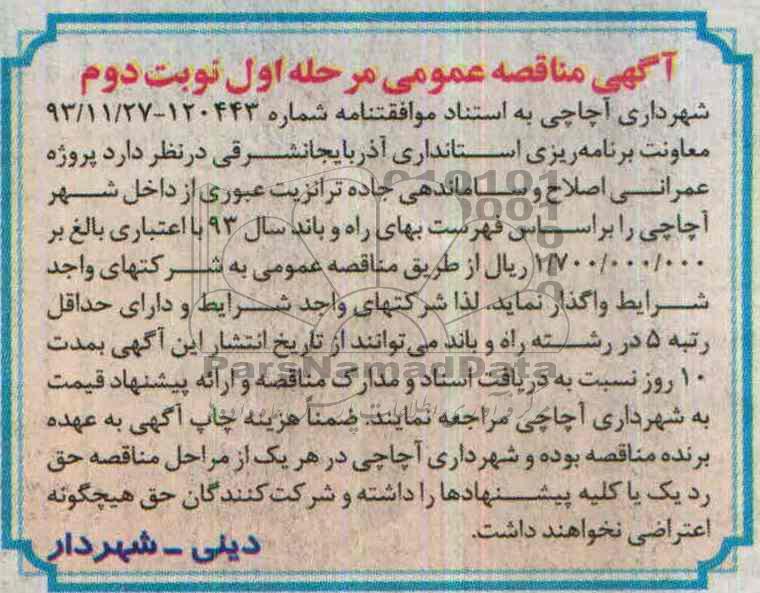 آگهی مناقصه عمومی مرحله اول نوبت دوم
شهرداری آچاچی به استناد موافقتنامه شماره ۱۲۰۴۴۳-۹۳/۱۱/۲۷
معاونت برنامه‌ریزی استانداری آذربایجانشرقی درنظر دارد پروژه
عمرانی اصلاح و ساماندهی جاده ترانزیت عبوری از داخل شهر
آچاچی را براساس فهرست بهای راه و باند سال ۹۳ با اعتباری بالغ بر
۱/۷۰۰/۰۰۰/۰۰۰ ریال از طریق مناقصه عمومی به شرکتهای واجد
شرایط واگذار نماید. لذا شرکتهای واجد شرایط و دارای حداقل
رتبه ۵ در رشته راه و باند می‌توانند از تاریخ انتشار این آگهی بمدت
۱۰ روز نسبت به دریافت اسناد و مدارک مناقصه و ارائه پیشنهاد قیمت
به شهرداری آچاچی مراجعه نمایند. ضمنا هزینه چاپ آگهی به عهده
برنده مناقصه بوده و شهرداری آچاچی در هر یک از مراحل مناقصه حق
رد یک یا کلیه پیشنهادها را داشته و شرکت‌کنندگان حق هیچگونه
اعتراضی نخواهند داشت.
دینی - شهردار
ParsNamadData